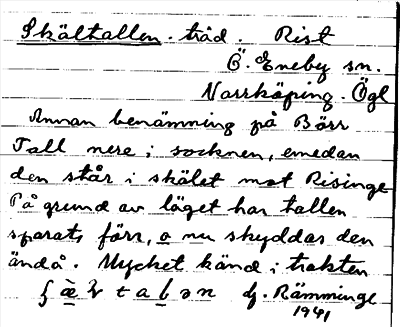 Skältallen. träd. Rist
Ö. Eneby sn.
Norrköping. Ögl
Annan benämning på Börr
Tall nere i socknen, emedan
den står i skälet mot Risinge
På grund av läget har tallen
sparats förr, o nu skyddas den
ändå. Mycket känd i trakten
Rämminge
1941